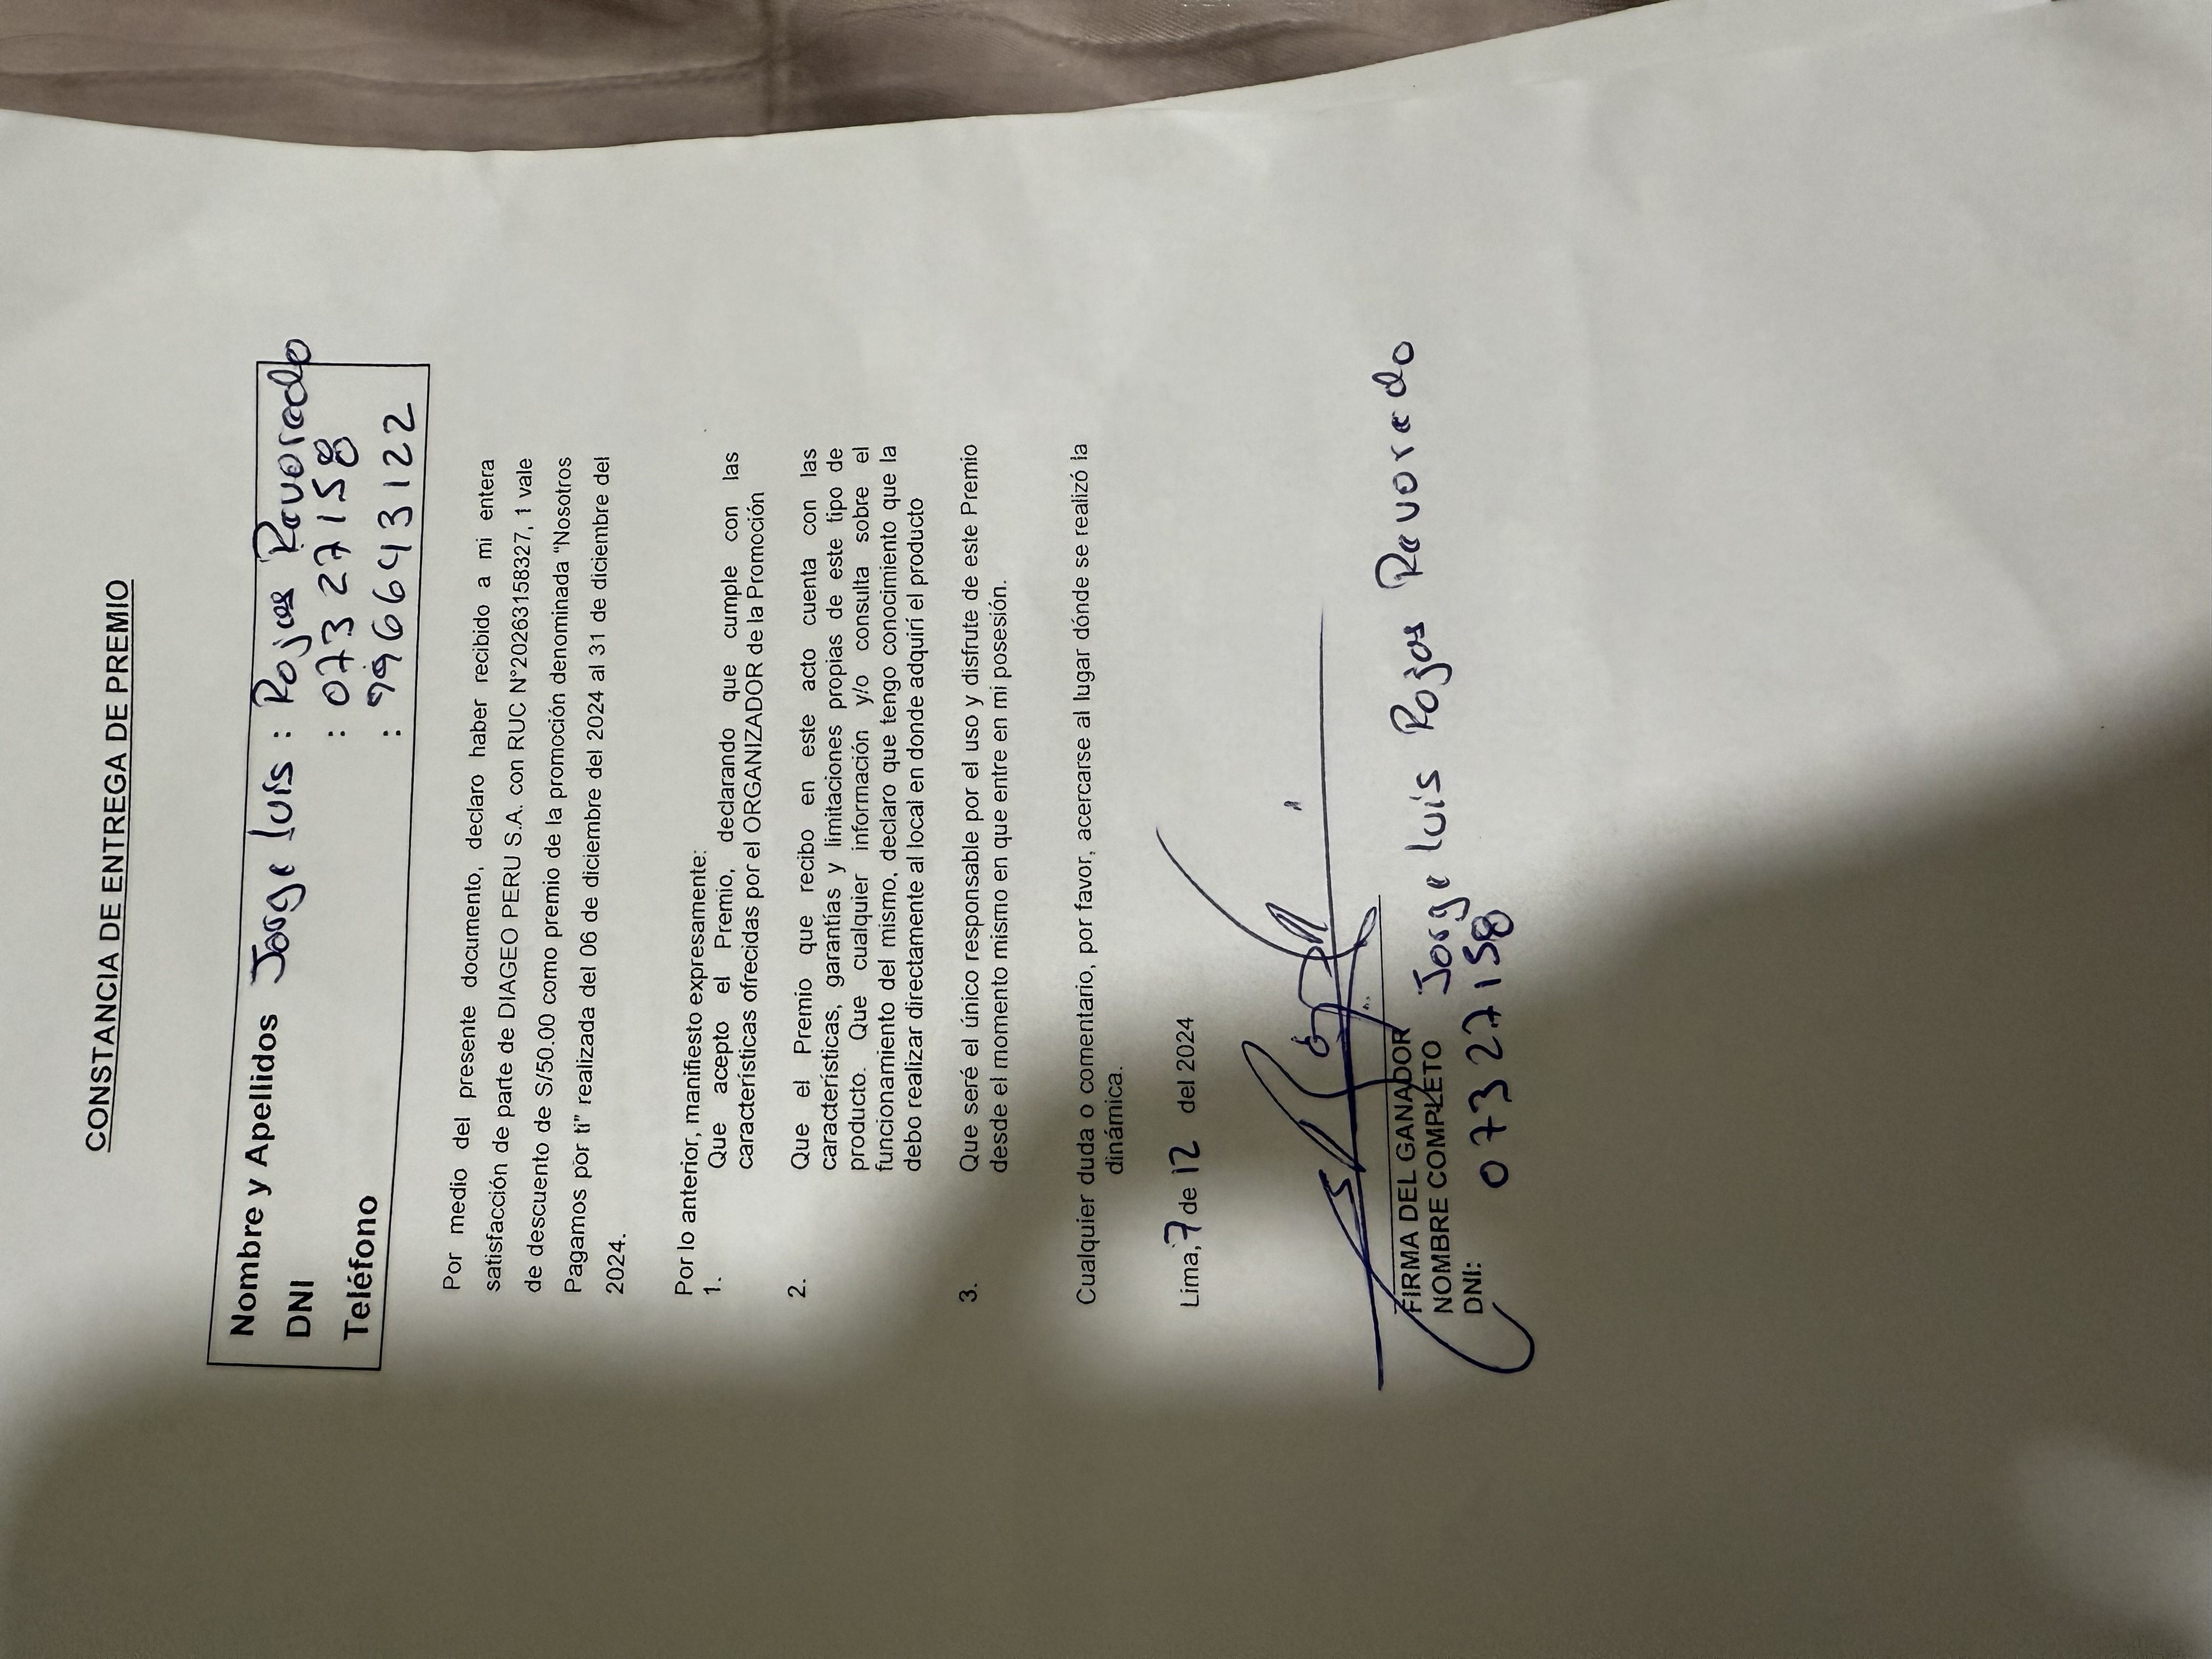 CONSTANCIA DE ENTREGA DE PREMIO
Nombre y Apellidos Jorge luis : Rojas Revoredo
DNI : 07327158
Teléfono : 996643122
Por medio del presente documento, declaro haber recibido a mi entera
satisfacción de parte de DIAGEO PERU S.A. con RUC N°20263158327, 1 vale
de descuento de S/50.00 como premio de la promoción denominada “Nosotros
Pagamos por ti” realizada del 06 de diciembre del 2024 al 31 de diciembre del
2024.
Por lo anterior, manifiesto expresamente:
1. Que acepto el Premio, declarando que cumple con las
características ofrecidas por el ORGANIZADOR de la Promoción
2. Que el Premio que recibo en este acto cuenta con las
características, garantías y limitaciones propias de este tipo de
producto. Que cualquier información y/o consulta sobre el
funcionamiento del mismo, declaro que tengo conocimiento que la
debo realizar directamente al local en donde adquirí el producto
3. Que seré el único responsable por el uso y disfrute de este Premio
desde el momento mismo en que entre en mi posesión.
Cualquier duda o comentario, por favor, acercarse al lugar dónde se realizó la
dinámica.
Lima, 7 de 12 del 2024
FIRMA DEL GANADOR
NOMBRE COMPLETO Jorge luis Rojas Revoredo
DNI: 07327158